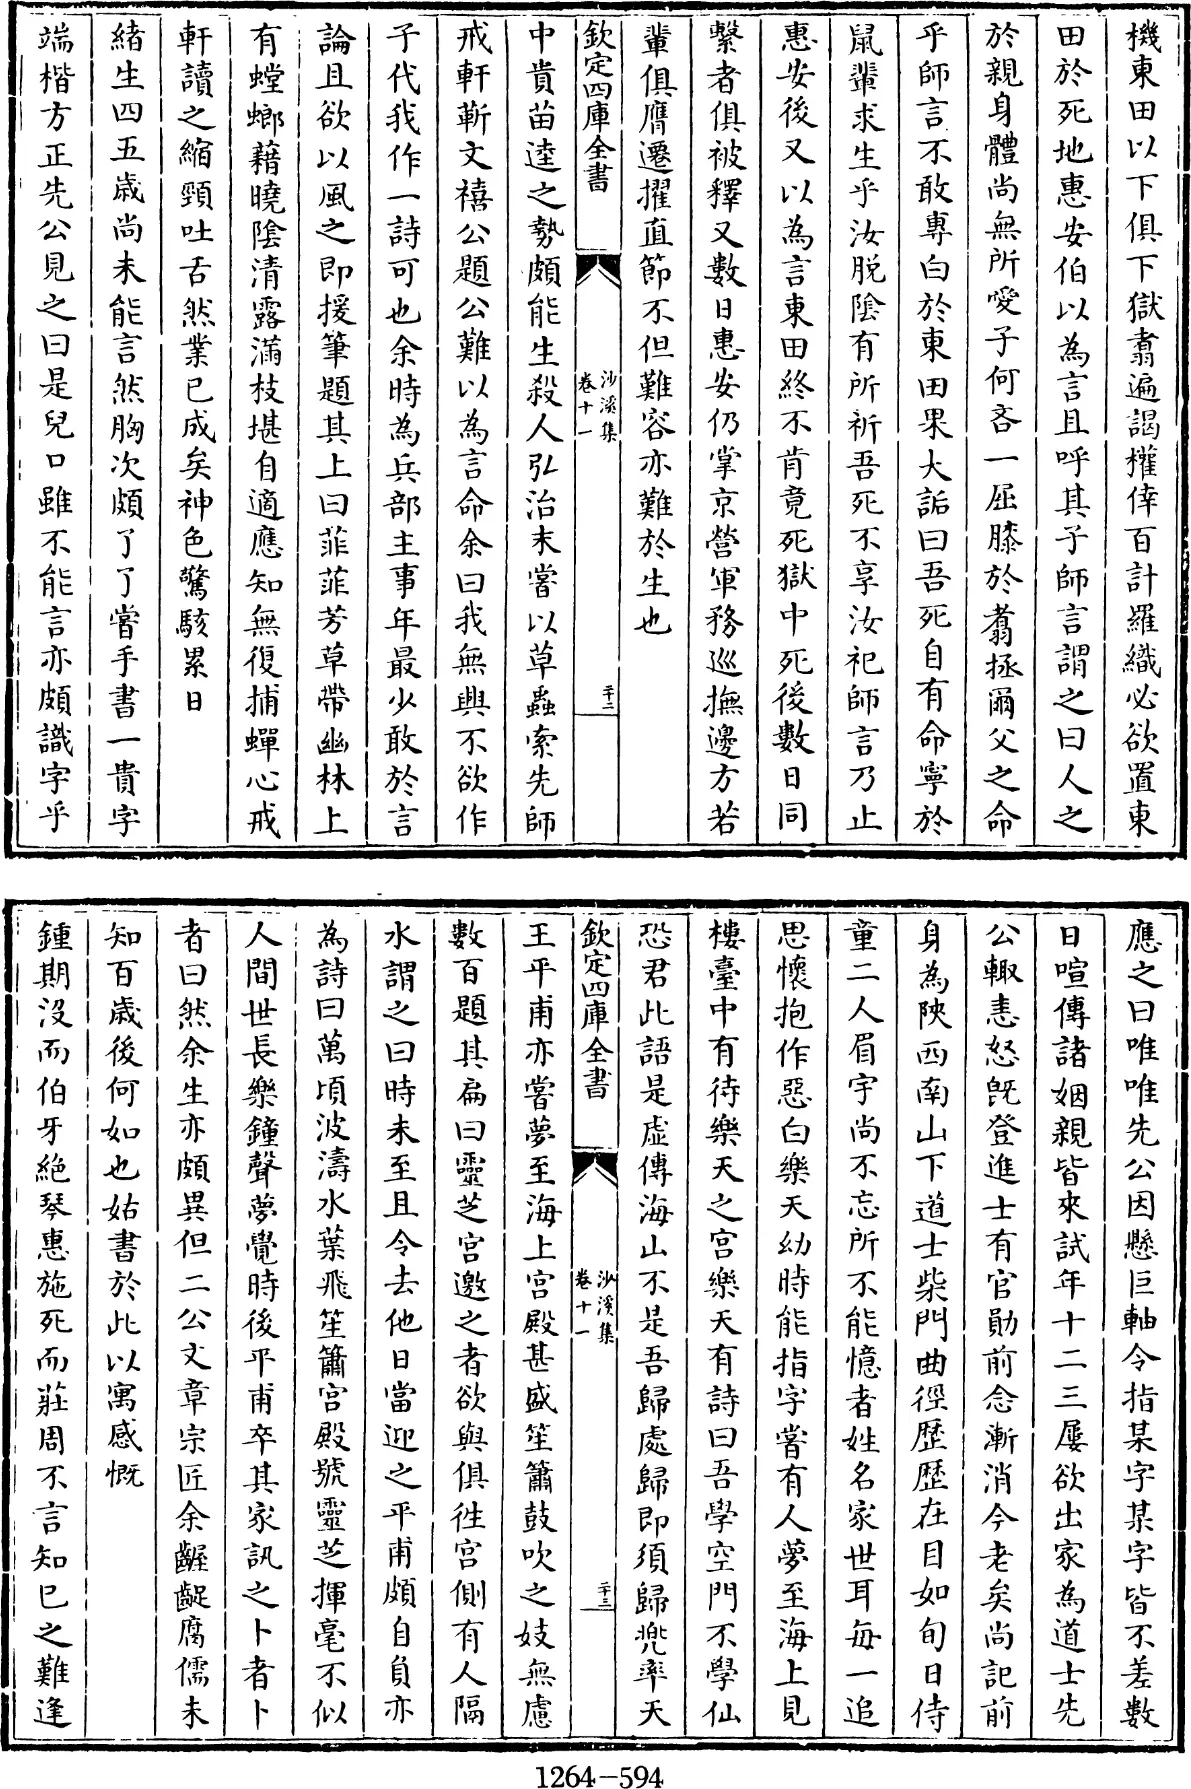 機東田以下俱下獄翥遍謁權倖百計羅織必欲置東
田於死地惠安伯以為言且呼其子師言謂之曰人之
於親身體尚無所愛子何吝一屈膝於翥拯爾父之命
乎師言不敢專白於東田果大詬曰吾死自有命寧於
鼠輩求生乎汝脱陰有所祈吾死不享汝祀師言乃止
惠安後又以為言東田終不肯竟死獄中死後數日同
繫者俱被釋又數日惠安仍掌京營軍務巡撫邊方若
輩俱膺遷擢直節不但難容亦難於生也
欽定四庫全書
沙溪集
卷十一
二十二
中貴苗逵之勢頗能生殺人弘治末嘗以草蟲索先師
戒軒靳文禧公題公難以為言命余曰我無興不欲作
子代我作一詩可也余時為兵部主事年最少敢於言
論且欲以風之即援筆題其上曰菲菲芳草帶幽林上
有螳螂藉曉陰清露滿枝堪自適應知無復捕蟬心戒
軒讀之縮頸吐舌然業已成矣神色驚駭累日
緒生四五歲尚未能言然胸次頗了了嘗手書一貴字
端楷方正先公見之曰是兒口雖不能言亦頗識字乎
應之曰唯唯先公因懸巨軸令指某字某字皆不差數
日喧傳諸姻親皆來試年十二三屢欲出家為道士先
公輙恚怒旣登進士有官勛前念漸消今老矣尚記前
身為陝西南山下道士柴門曲徑歷歷在目如旬日侍
童二人眉宇尚不忘所不能憶者姓名家世耳每一追
思懷抱作惡白樂天幼時能指字嘗有人夢至海上見
樓臺中有待樂天之宮樂天有詩曰吾學空門不學仙
恐君此語是虛傳海山不是吾歸處歸即須歸兜率天
欽定四庫全書
沙溪集
卷十一
二十三
王平甫亦嘗夢至海上宮殿甚盛笙簫鼓吹之妓無慮
數百題其扁曰靈芝宮邀之者欲與俱徃宮側有人隔
水謂之曰時未至且令去他日當迎之平甫頗自負亦
為詩曰萬頃波濤水葉飛笙簫宮殿號靈芝揮毫不似
人間世長樂鐘聲夢覺時後平甫卒其家訊之卜者卜
者曰然余生亦頗異但二公文章宗匠余齷齪腐儒未
知百歲後何如也姑書於此以寓感慨
鍾期沒而伯牙絕琴惠施死而莊周不言知巳之難逢
1264-594